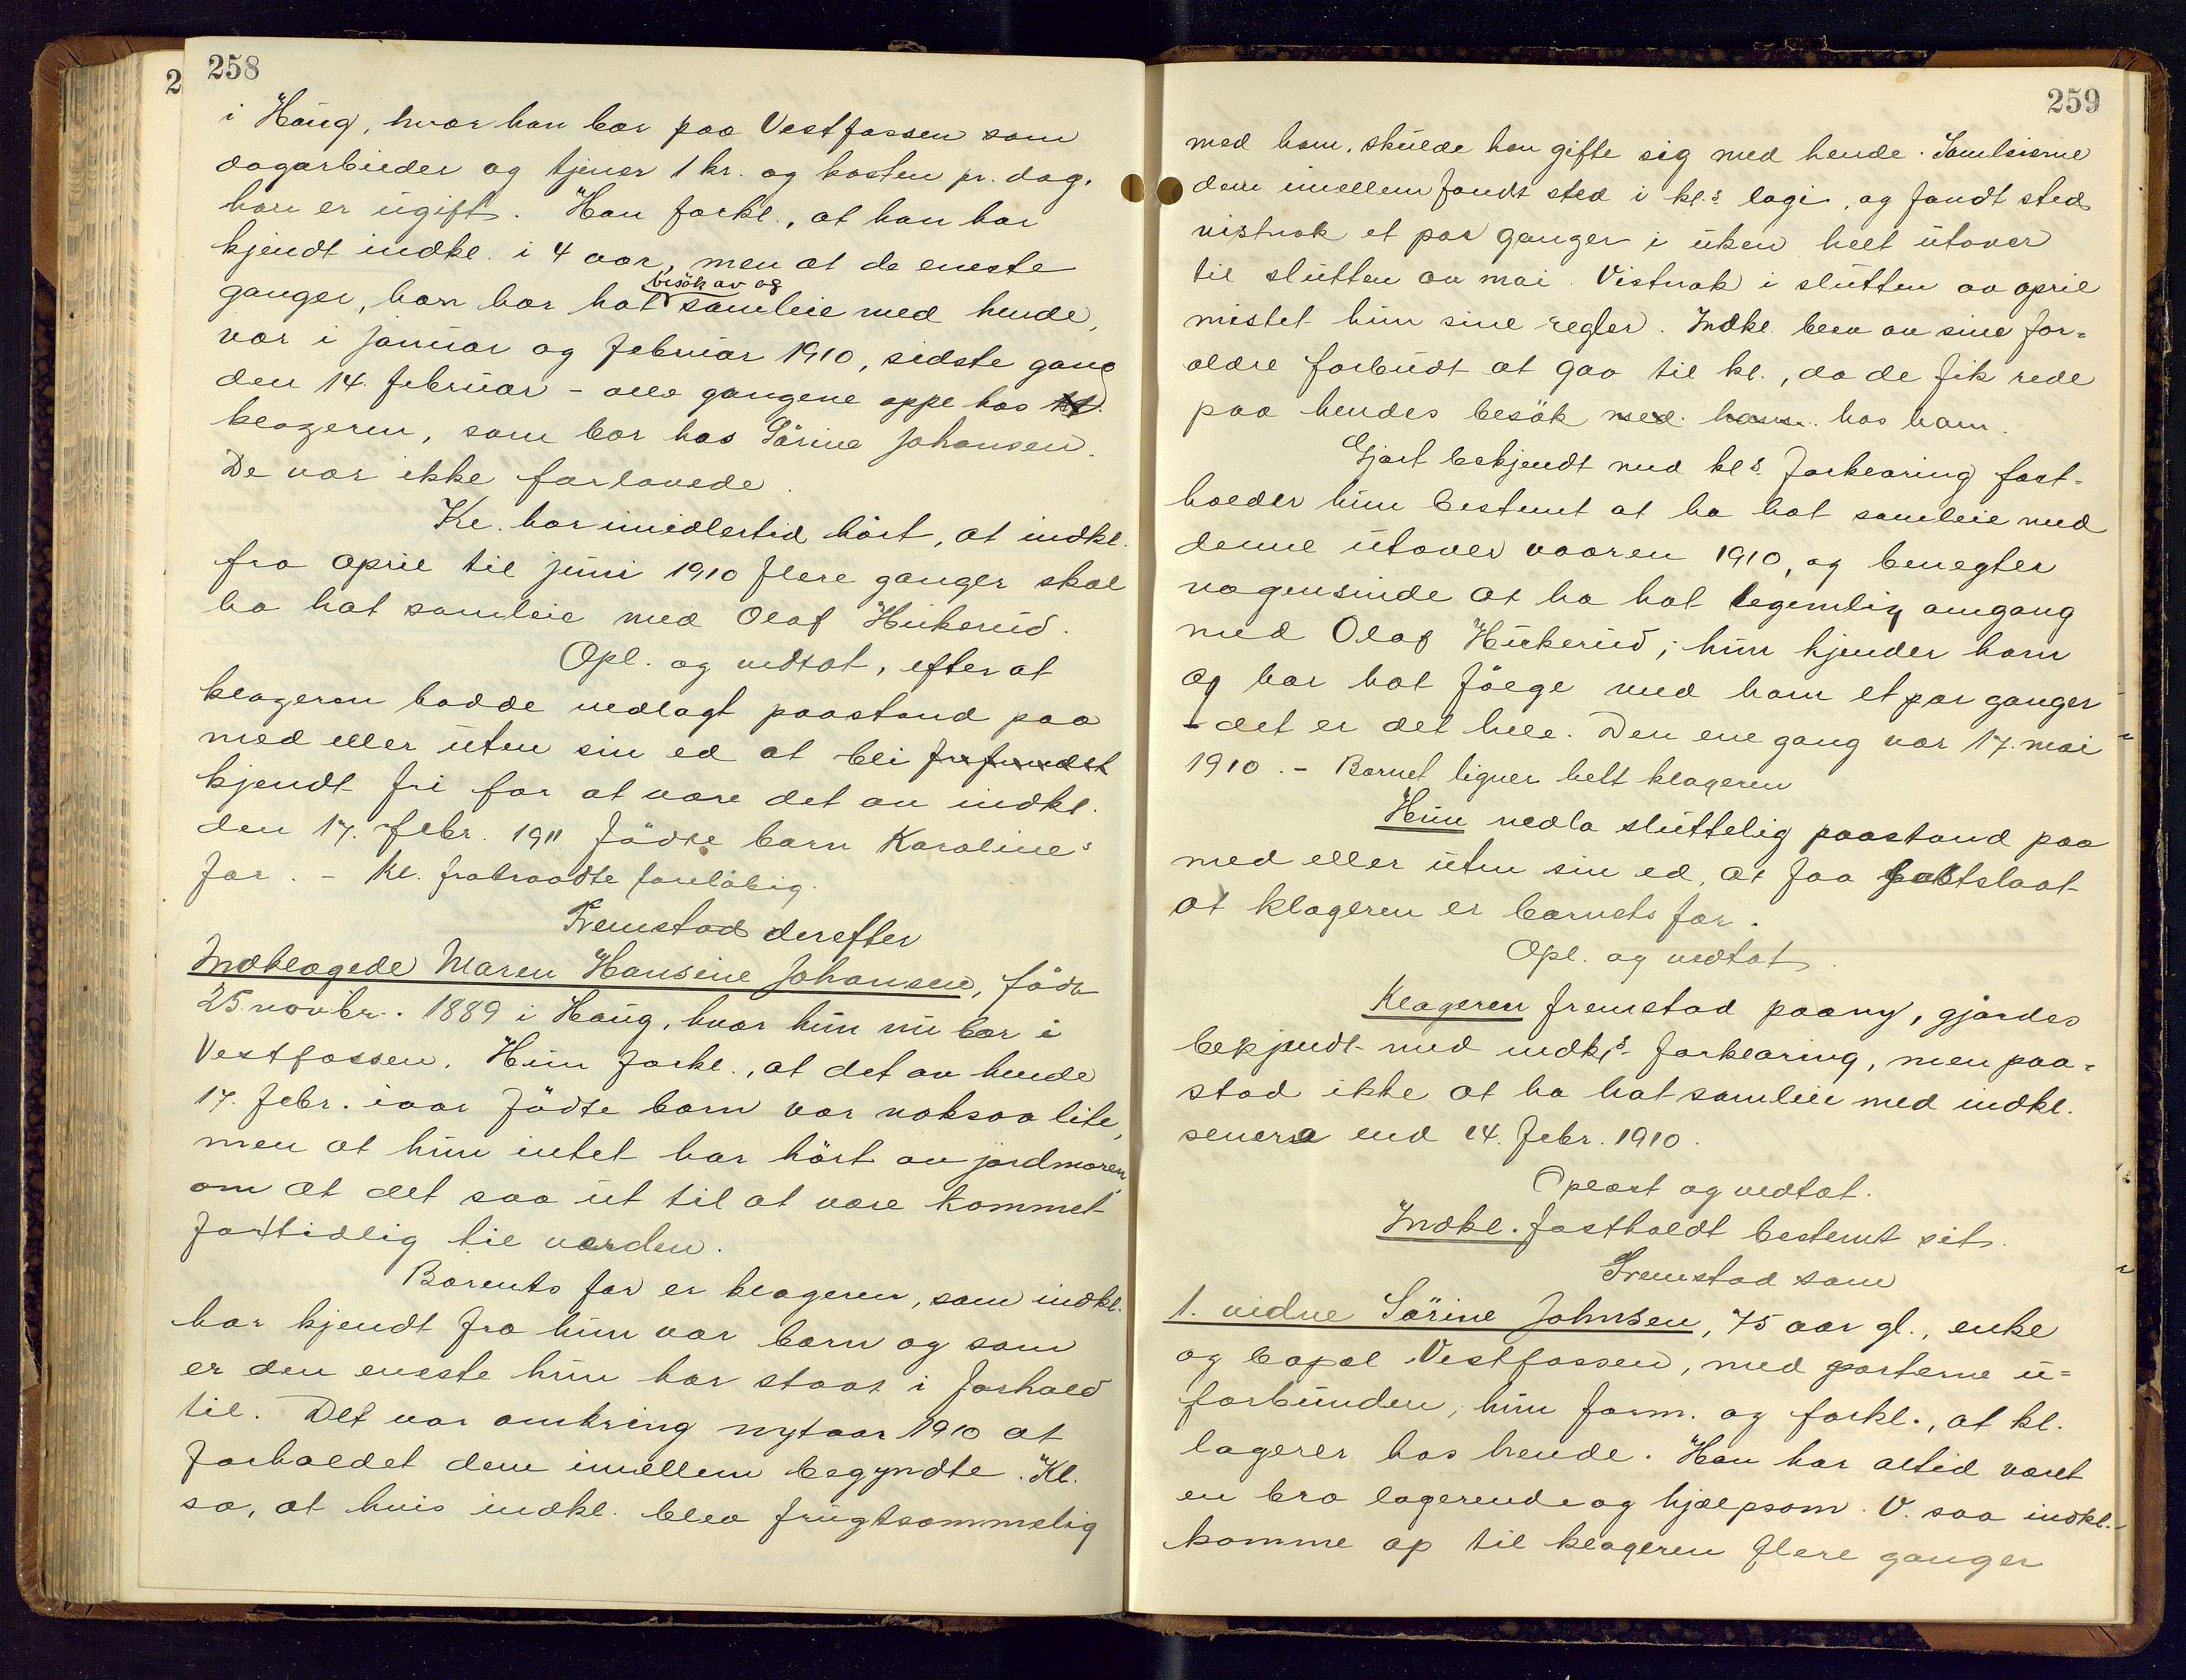 2
258
i Haug, hvor han bor paa Vestfossen som
dagarbeider og tjener 1 kr. og kosten pr. dag.
han er ugift. Han forkl., at han har
kjendt indkl. i 4 aar, men at de eneste
besök av og
ganger, han har hat samleie med hende,
var i januar og februar 1910, sidste gang
den 14. februar - alle gangene oppe hos
klageren, som bor hos Sörine Johansen.
De var ikke forlovede.
Kl. har imidlertid hört, at indkl.
fra april til juni 1910 flere ganger skal
ha hat samleie med Olaf Hukerud.
Opl. og vedtat, efter at
klageren hadde nedlagt paastand paa
med eller uten sin ed at bli frifundet
kjendt fri for at være det av indkl.
den 17. febr. 1911 födte barn Karoline's
far. - Kl. fratraadte foreløbig.
Fremstod derefter
Indklagede Maren Hansine Johansen, född
25 novbr. 1889 i Haug, hvor hun nu bor i
Vestfossen. Hun forkl., at det av hende
17. febr. iaar födte barn var noksaa lite,
men at hun intet har hört av jordmoren
om at det saa ut til at være kommet
fortidlig til verden.
Barents far er klageren, som indkl.
har kjendt fra hun var barn og som
er den eneste hun har staat i forhold
til. Det var omkring nytaar 1910 at
forholdet dem imellem begyndte. Kl.
sa, at hvis indkl. blev frugtsommelig
259
med ham, skulde han gifte sig med hende. Samleierne
dem imellem fandt sted i kl.s logi, og fandt sted
vistnok et par ganger i uken helt utover
til slutten av mai. Vistnok i slutten av april
mistet hun sine regler. Indkl. blev av sine for-
ældre forbudt at gaa til kl., da de fik rede
paa hendes besök med ham hos ham.
Gjort bekjendt med kls forklaring fast-
holder hun bestemt at ha hat samleie med
denne utover vaaren 1910, og benegter
nogensinde at ha hat legemlig omgang
med Olaf Hukerud; hun kjender ham
og har hat fölge med ham et par ganger
- det er det hele. Den ene gang var 17. mai
1910. - Barnet ligner helt klageren
Hun nedla sluttelig paastand paa
med eller uten sin ed, at faa fastslaat
at klageren er barnets far.
Opl. og vedtat.
Klageren fremstod paany, gjordes
bekjendt med indkls forklaring, men paa-
stod ikke at ha hat samleie med indkl.
senere end 14. febr. 1910.
Oplæst og vedtat.
Indkl. fastholdt bestemt sit.
Fremstod som
1. vidne Sörine Johnsen, 75 aar gl., enke
og bopæl Vestfossen, med parterne u-
forbunden; hun form. og forkl., at kl.
logerer hos hende. Han har altid været
en bra logerende og hjælpsom. V. saa indkl.
komme op til klageren flere ganger